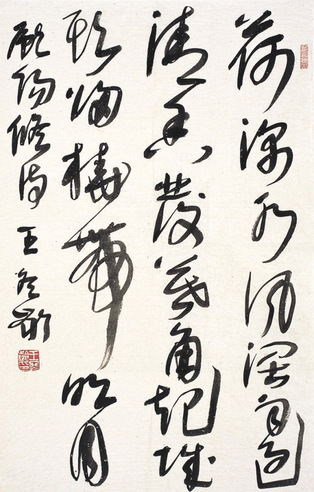 荷深水風闊雨過
清香發暮角起城
頭歸橈帶明月
歐陽脩詩 王冬齡